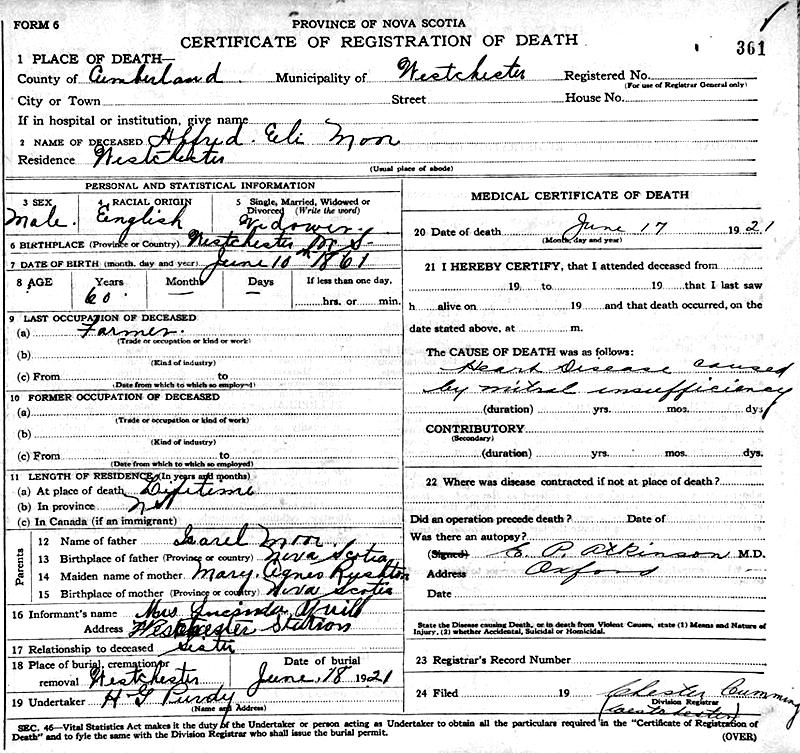 FORM 6
PROVINCE OF NOVA SCOTIA
CERTIFICATE OF REGISTRATION OF DEATH
361
1 PLACE OF DEATH—
County of Cumberland Municipality of Westchester Registered No.
(For use of Registrar General only)
City or Town Street House No.
If in hospital or institution, give name
2 NAME OF DECEASED Alfred Eli Moor
Residence Westchester
(Usual place of abode)
PERSONAL AND STATISTICAL INFORMATION
3 SEX 4 RACIAL ORIGIN 5 Single, Married, Widowed or Divorced (Write the word)
Male. English Widower.
6 BIRTHPLACE (Province or Country) Westchester N.S.
7 DATE OF BIRTH (month, day and year) June 10th 1861
8 AGE Years Months Days If less than one day,
60 hrs. or min.
9 LAST OCCUPATION OF DECEASED
(a) Farmer.
(Trade or occupation or kind or work)
(b)
(Kind of industry)
(c) From to
(Date from which to which so employed)
10 FORMER OCCUPATION OF DECEASED
(a)
(Trade or occupation or kind of work)
(b)
(Kind of industry)
(c) From to
(Date from which to which so employed)
11 LENGTH OF RESIDENCE (In years and months)
(a) At place of death Lifetime
(b) In province NS
(c) In Canada (if an immigrant)
Parents
12 Name of father Isarel Moor
13 Birthplace of father (Province or country) Nova Scotia
14 Maiden name of mother Mary Agnes Rushton
15 Birthplace of mother (Province or country) Nova Scotia
16 Informant's name Mrs
Address Westchester Station
17 Relationship to deceased Sister
18 Place of burial, cremation or removal Westchester Date of burial June 18 1921
19 Undertaker H G Purdy
(Name and Address)
MEDICAL CERTIFICATE OF DEATH
20 Date of death June 17 1921
(Month, day and year)
21 I HEREBY CERTIFY, that I attended deceased from
19 to 19 that I last saw
h alive on 19 and that death occurred, on the
date stated above, at m.
The CAUSE OF DEATH was as follows:
Heart Disease caused
by mitral insufficiency
(duration) yrs. mos. dys.
CONTRIBUTORY
(Secondary)
(duration) yrs. mos. dys.
22 Where was disease contracted if not at place of death?
Did an operation precede death? Date of
Was there an autopsy?
(Signed) E. P. Atkinson M.D.
Address Oxford
Date
State the Disease causing Death, or in death from Violent Causes, state (1) Means and Nature of
Injury, (2) whether Accidental, Suicidal or Homicidal.
23 Registrar's Record Number
24 Filed 19 Chester Cumming
Division Registrar
(Westchester)
SEC. 46—Vital Statistics Act makes it the duty of the Undertaker or person acting as Undertaker to obtain all the particulars required in the "Certificate of Registration of
Death" and to fyle the same with the Division Registrar who shall issue the burial permit.
(OVER)